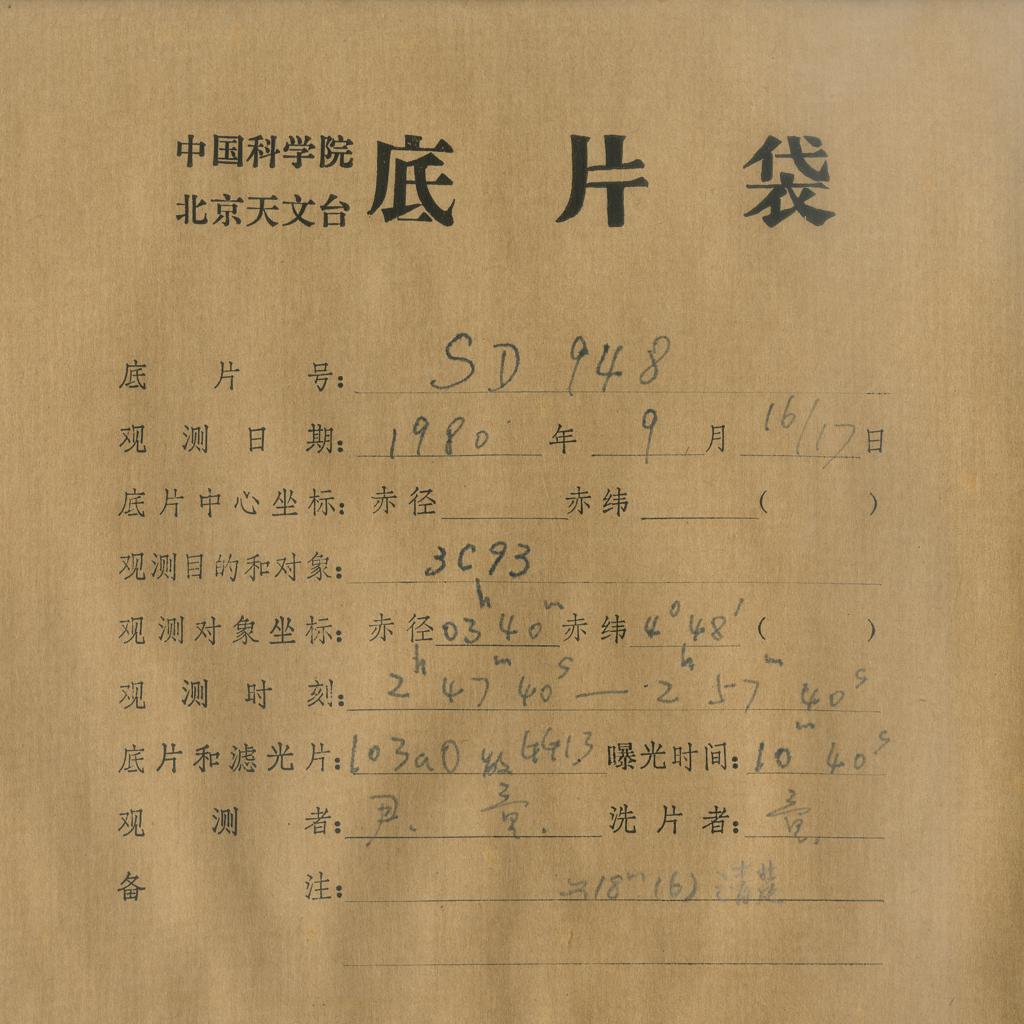 中国科学院
北京天文台
底片袋
底片号: SD 948
观测日期: 1980 年 9 月 16/17 日
底片中心坐标: 赤径 赤纬 ( )
观测目的和对象: 3C93
观测对象坐标: 赤径 03ʰ40ᵐ 赤纬 4⁰48′ ( )
观测时刻: 2ʰ47ᵐ40ˢ — 2ʰ57ᵐ40ˢ
底片和滤光片: 103aO 曝光时间: 10ᵐ40ˢ
观测者: 尹. 洗片者:
备注: 18ᵐ(6) 清楚